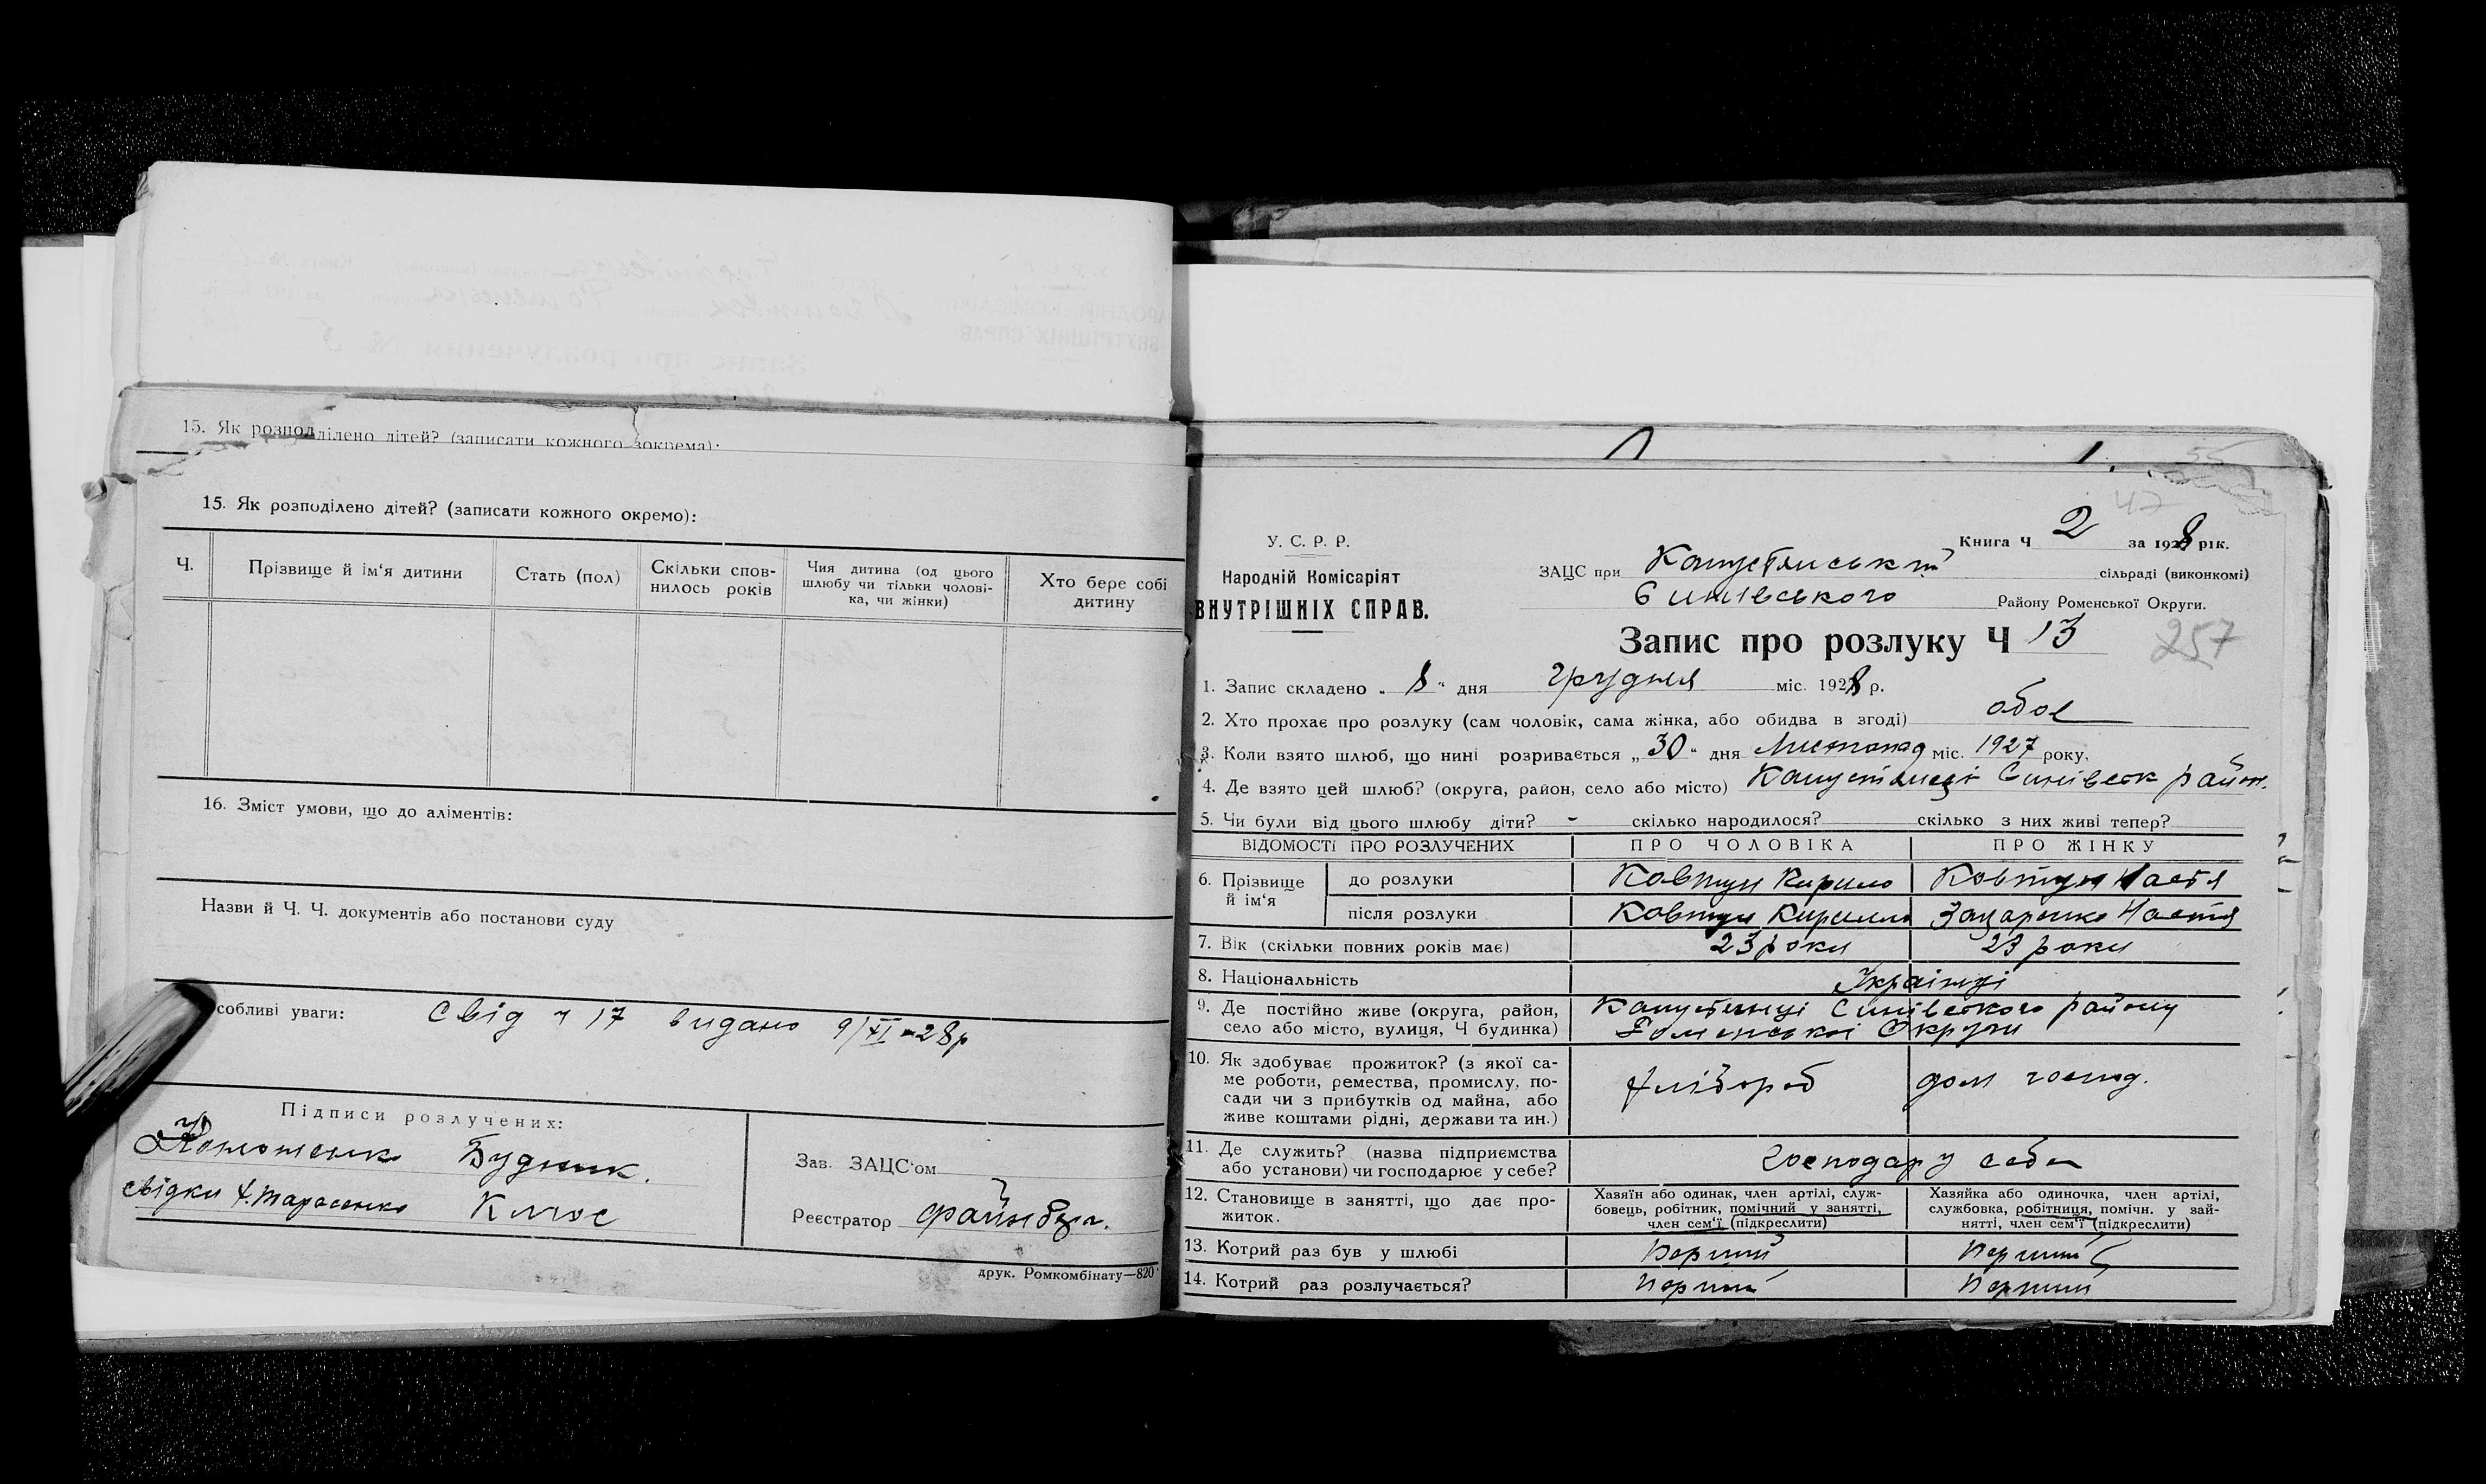 15. Як розподілено дітей? (записати кожного зокрема):
15. Як розподілено дітей? (записати кожного окремо):
Ч.
Прізвище й ім'я дитини
Стать (пол)
Скільки спов-
нилось років
Чия дитина (од цього
шлюбу чи тільки чолові-
ка, чи жінки)
Хто бере собі
дитину
16. Зміст умови, що до аліментів:
Назви й Ч. Ч. документів або постанови суду
собливі уваги: Свід ч 17 видано 9/XI-28р
Підписи розлучених:
Будник.
свідки Тарасенко
Зав. ЗАЦС'ом
Реєстратор Файнберг.
друк. Ромкомбінату—820
55
47
У. С. Р. Р.
Народній Комісаріят
ВНУТРІШНІХ СПРАВ.
Книга Ч 2 за 1928 рік.
ЗАЦС при Капустянській сільраді (виконкомі)
Синівського Району Роменської Округи.
Запис про розлуку Ч 13
257
1. Запис складено „ 8 " дня грудня міс. 1928 р.
2. Хто прохає про розлуку (сам чоловік, сама жінка, або обидва в згоді) обоє
3. Коли взято шлюб, що нині розривається „ 30 " дня Листопад міс. 1927 року.
4. Де взято цей шлюб? (округа, район, село або місто) Капустинці Синівськ район.
5. Чи були від цього шлюбу діти? - скілько народилося? скілько з них живі тепер?
ВІДОМОСТІ ПРО РОЗЛУЧЕНИХ
ПРО ЧОЛОВІКА
ПРО ЖІНКУ
6. Прізвище
й ім'я
до розлуки Ковтун Кирило Ковтун Настя
після розлуки Ковтун Кирило Захарченко Настя
7. Вік (скільки повних років має) 23 роки 23 роки
8. Національність Українці
9. Де постійно живе (округа, район,
село або місто, вулиця, Ч будинка)
Капустинці Синівського району
Роменської Округи
10. Як здобуває прожиток? (з якої са-
ме роботи, ремества, промислу, по-
сади чи з прибутків од майна, або
живе коштами рідні, держави та ин.)
хлібороб
дом господ.
11. Де служить? (назва підприємства
або установи) чи господарює у себе?
господар у себе
12. Становище в занятті, що дає про-
житок.
Хазяїн або одинак, член артілі, служ-
бовець, робітник, помічний у занятті,
член сем'ї (підкреслити)
Хазяйка або одиночка, член артілі,
службовка, робітниця, помічн. у зай-
нятті, член сем'ї (підкреслити)
13. Котрий раз був у шлюбі Перший Перший
14. Котрий раз розлучається? Перший Перший